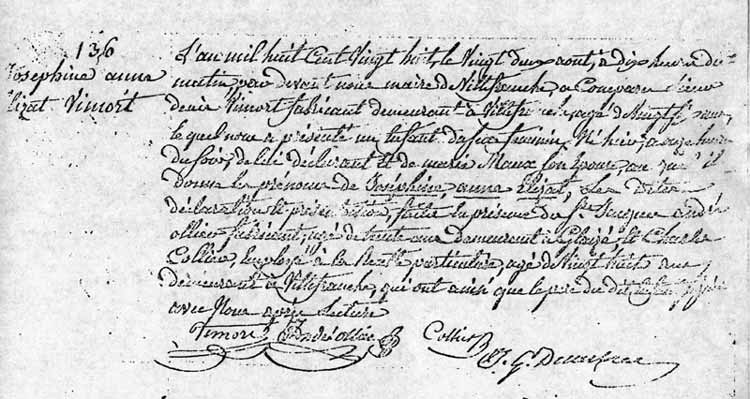 136
Josephine anna
Elizat Vimort
L'an mil huit Cent Vingt huit, le Vingt deux aout, à dix heure du
matin par devant nous maire de Villefranche, a Comparu Sieur
denis Vimort fabricant demeurant à Villefranche agé de Vingt neuf
lequel nous a présenté un Enfant du sexe feminin, Né hier, a onze heures
du soir, de lui déclarant et de marie Maux son Epouse, au quel il
donne les prénoms de Joséphine, anna Elizat, Les dites
déclaration et présentation, faite en présence du Sr. Jacques andré
ollier fabricant, agé de trente ans demeurant à Gleizé et Charles
Collier, Employé à la Recette particulière, agé de Vingt huit ans
demeurant à Villefranche, qui ont ainsi que le pere du dit Enfant Signé
avec Nous après Lecture
Vimort André ollier Collier
J. G.